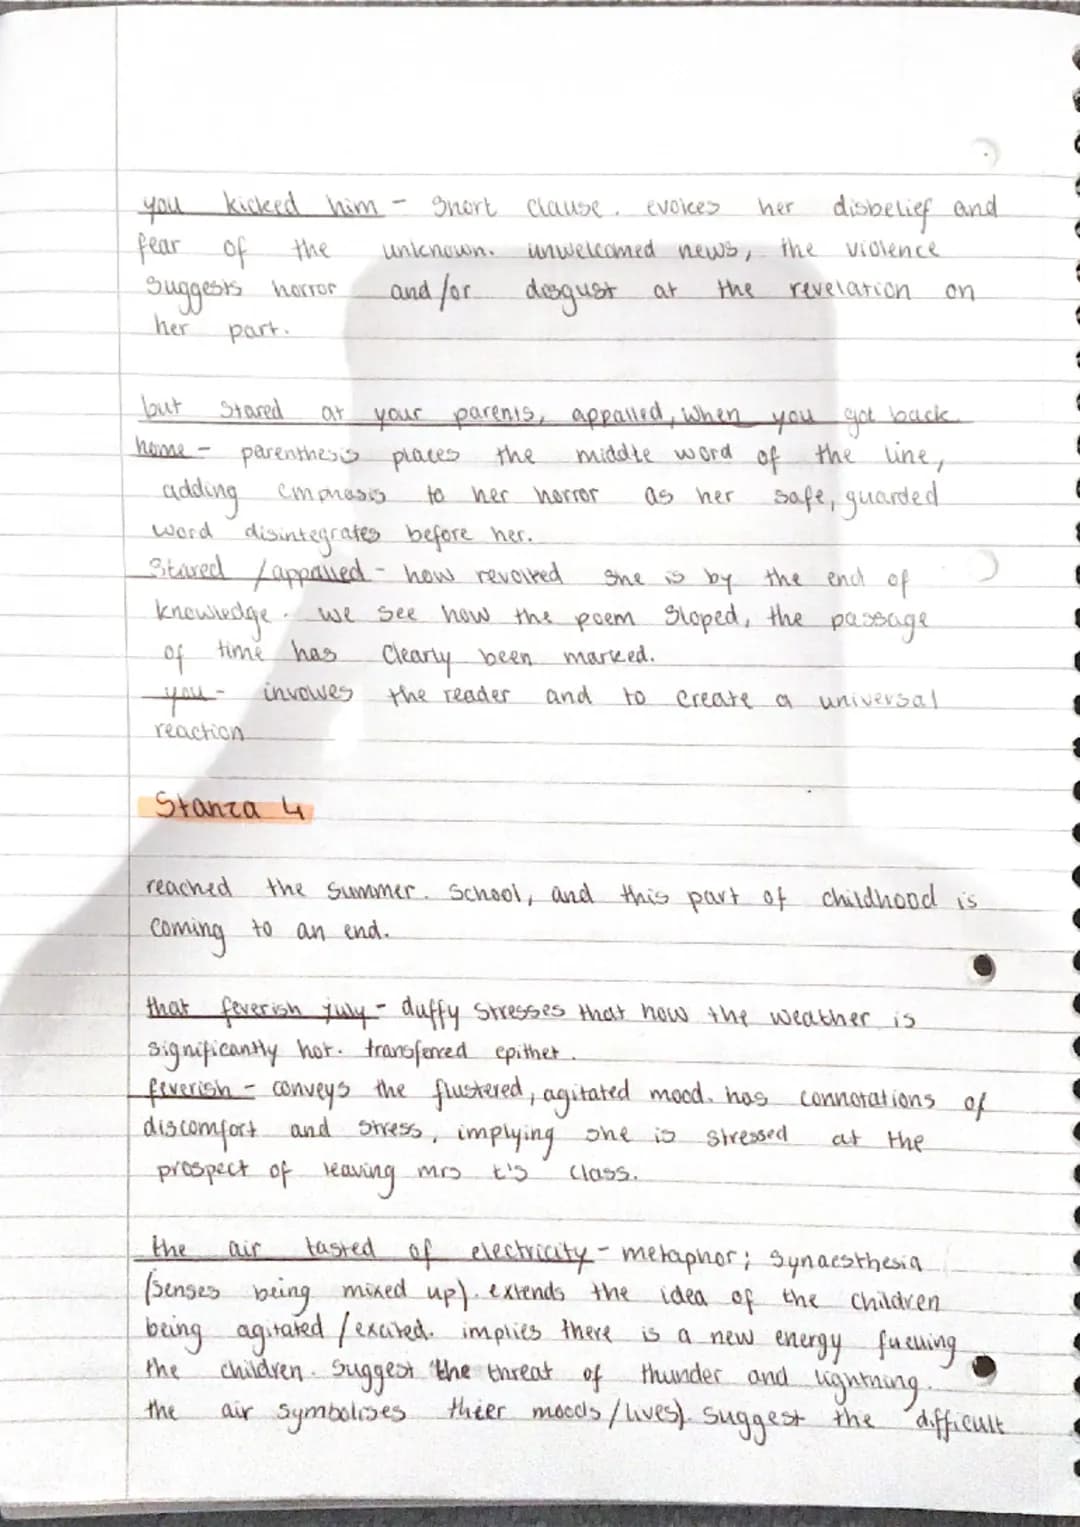 you kicked him - short clause. evokes her disbelief and
fear of the unknown. unwelcomed news, the violence
suggests horror and/or disgust at the revelation on
her part.
but stared at your parents, appalled, when you got back
home - parenthesis places the middle word of the line,
adding emphasis to her horror as her safe, guarded
word disintegrates before her.
Stared / appalled - how revolted she is by the end of
knowledge. we see how the poem sloped, the passage
of time has clearly been marked.
you - involves the reader and to create a universal
reaction
Stanza 4
reached the summer. School, and this part of childhood is
coming to an end.
that feverish july - duffy stresses that how the weather is
significantly hot. transferred epithet.
feverish - conveys the flustered, agitated mood. has connotations of
discomfort and stress, implying she is stressed at the
prospect of leaving mrs t's class.
the air tasted of electricity - metaphor; synaesthesia
(senses being mixed up). extends the idea of the children
being agitated / excited. implies there is a new energy fueling
the children. suggest the threat of thunder and lightning.
the air symbolises thier moods / lives). suggest the difficult